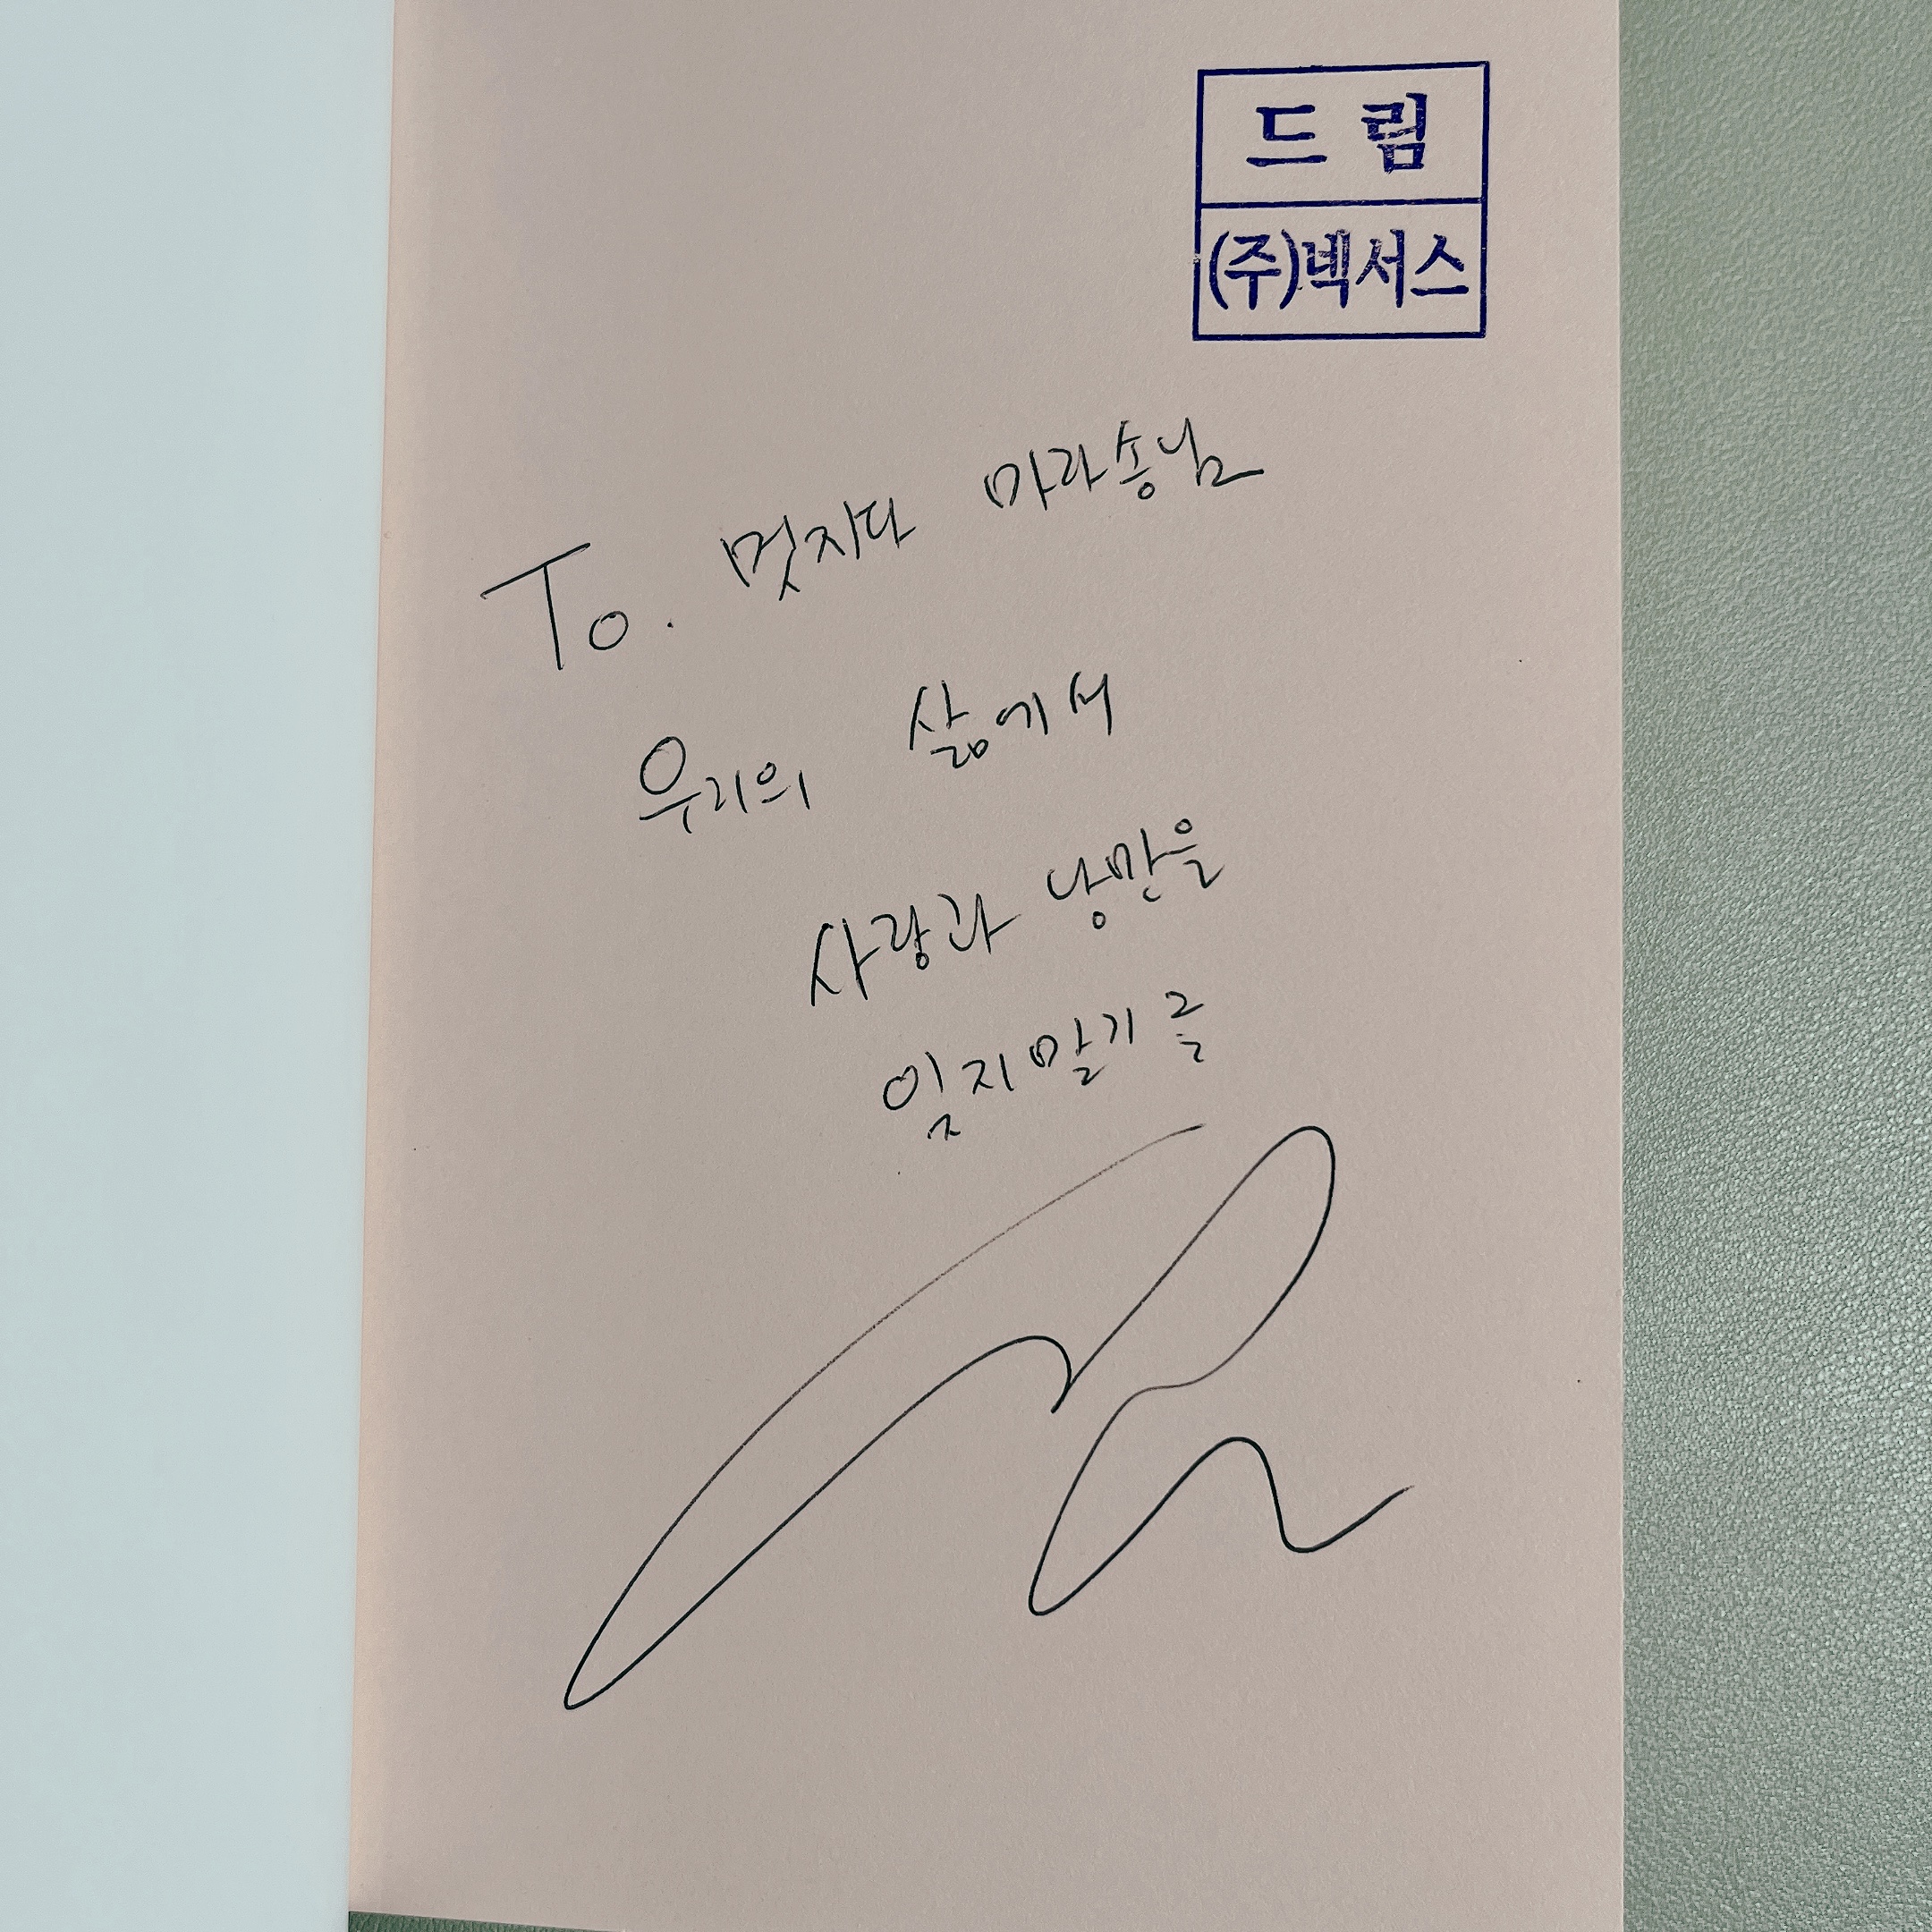 드림
(주)넥서스
To. 멋지다 마라송님
우리의 삶에서
사랑과 낭만을
잊지말기를